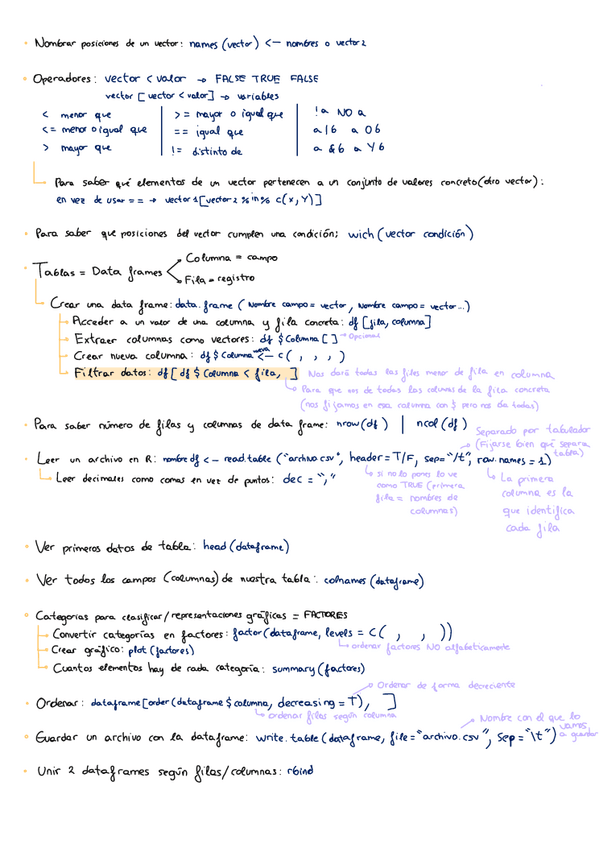 • Nombrar posiciones de un vector: names (vector) <— nombres o vector2
• Operadores: vector < valor → FALSE TRUE FALSE
vector [vector < valor] → variables
< menor que
<= menor o igual que
> mayor que
>= mayor o igual que
== igual que
!= distinto de
!a NO a
a|b a O b
a & b a Y b
Para saber qué elementos de un vector pertenecen a un conjunto de valores concreto (otro vector):
en vez de usar == → vector1[vector2 %in% c(x,Y)]
• Para saber que posiciones del vector cumplen una condición; wich (vector condición)
• Tablas = Data frames
Columna = campo
Fila = registro
Crear una data frame: data.frame (Nombre campo = vector, Nombre campo = vector...)
Acceder a un valor de una columna y fila concreta: df [fila, columna]
Extraer columnas como vectores: df $ Columna [ ] → Opcional
Crear nueva columna: df $ Columna nueva <— c( , , , )
Filtrar datos: df [df $ Columna < fila, ] Nos dará todas las filas menor de fila en columna
Para que nos de todas las columnas de la fila concreta
(nos fijamos en esa columna con $ pero nos da todas)
• Para saber número de filas y columnas de data frame: nrow(df) | ncol (df)
Separado por tabulador
(Fijarse bien qué separa tabla)
• Leer un archivo en R: nombre df <— read.table ("archivo.csv", header = T/F, sep= "/t", row.names = 1)
Leer decimales como comas en vez de puntos: dec = ","
si no lo pones lo ve
como TRUE (primera
fila = nombres de
columnas)
La primera
columna es la
que identifica
cada fila
• Ver primeros datos de tabla: head (dataframe)
• Ver todos los campos (columnas) de nuestra tabla: colnames (dataframe)
• Categorías para clasificar/representaciones gráficas = FACTORES
Convertir categorías en factores: factor (dataframe, levels = C( , , ))
ordenar factores NO alfabeticamente
Crear gráfico: plot (factores)
Cuantos elementos hay de cada categoría: summary (factores)
Ordenar de forma decreciente
• Ordenar: dataframe [order (dataframe $ columna, decreasing = T), ]
ordenar filas según columna
Nombre con el que lo
vamos
a guardar
• Guardar un archivo con la dataframe: write.table (dataframe, file="archivo.csv", Sep = "\t")
• Unir 2 dataframes según filas/columnas: rbind